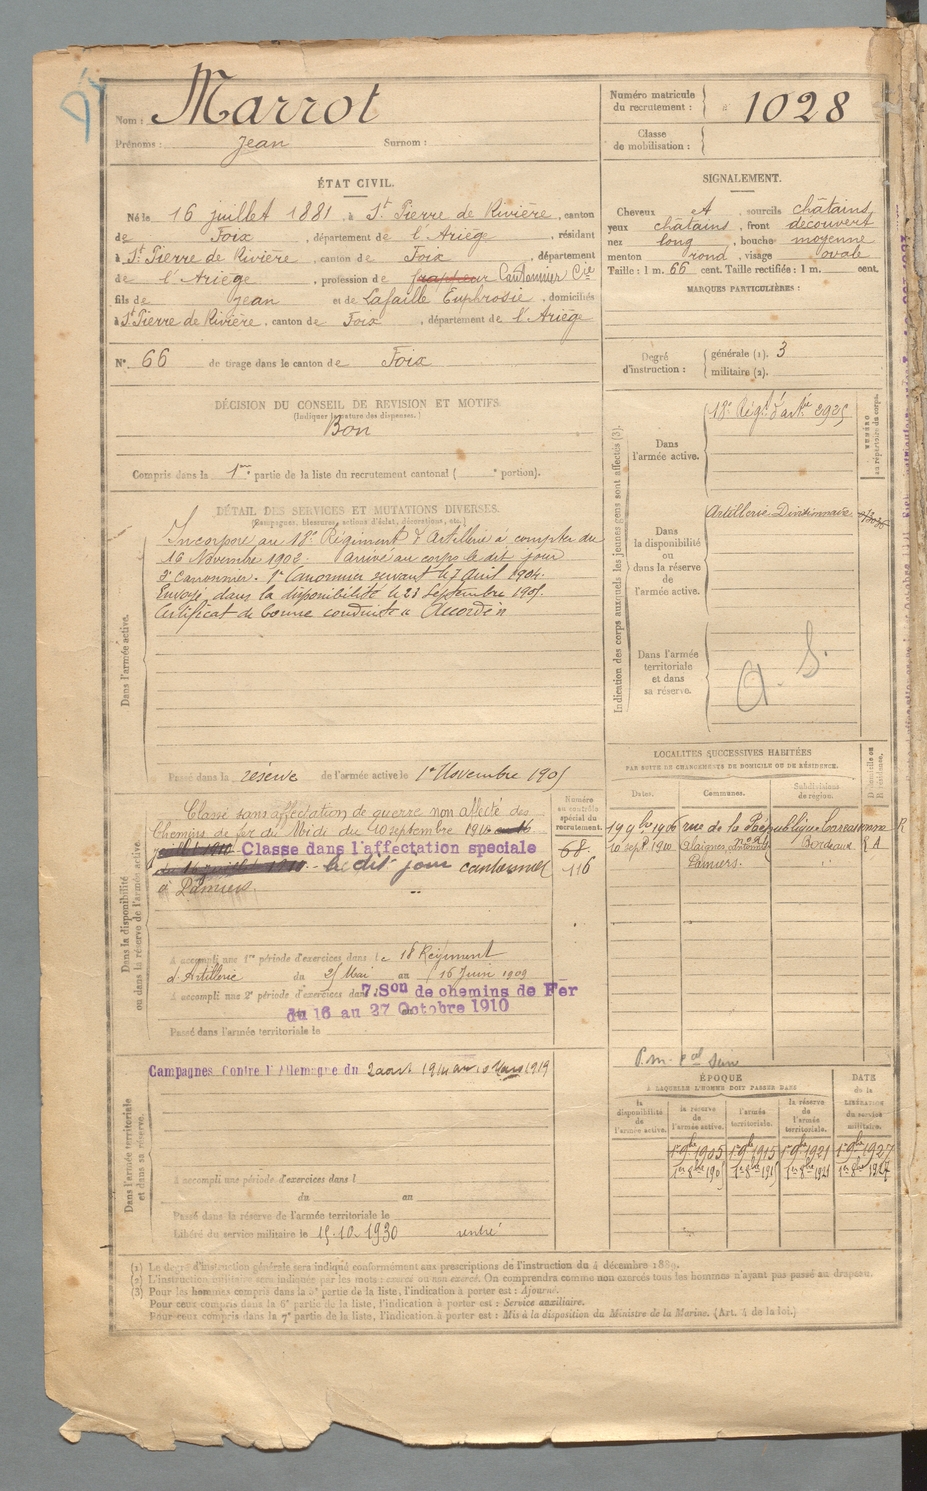 Nom : Marrot
Prénoms : Jean Surnom :
Numéro matricule
du recrutement : 1028
Classe
de mobilisation :
ÉTAT CIVIL.
Né le 16 juillet 1881, à St Pierre de Rivière, canton
de Foix, département de l'Ariège, résidant
à St Pierre de Rivière, canton de Foix, département
de l'Ariège, profession de Cantonnier Cie
fils de Jean et de Lafaille Euphrosie, domiciliés
à St Pierre de Rivière, canton de Foix, département de l'Ariège
N° 66 de tirage dans le canton de Foix
SIGNALEMENT.
Cheveux et, sourcils châtains
yeux châtains, front découvert
nez long, bouche moyenne
menton rond, visage ovale
Taille : 1 m. 66 cent. Taille rectifiée : 1 m. cent.
MARQUES PARTICULIÈRES :
Degré
d'instruction :
générale (1). 3
militaire (2).
DÉCISION DU CONSEIL DE REVISION ET MOTIFS
(Indiquer la nature des dispenses.)
Bon
Compris dans la 1re partie de la liste du recrutement cantonal ( e portion).
DÉTAIL DES SERVICES ET MUTATIONS DIVERSES.
(Campagnes, blessures, actions d'éclat, décorations, etc.)
Dans l'armée active.
Incorporé au 18e Régiment d'Artillerie à compter du
16 Novembre 1902. Arrivé au corps le dit jour
2e Canonnier. 1er Canonnier servant le 7 Avril 1904.
Envoyé dans la disponibilité le 23 Septembre 1905.
Certificat de bonne conduite "Accordé"
Passé dans la réserve de l'armée active le 1er Novembre 1905
Indication des corps auxquels les jeunes gens sont affectés (3).
Dans
l'armée active.
18e Régt d'artie 2925
NUMÉRO
au répertoire du corps.
Dans
la disponibilité
ou
dans la réserve
de
l'armée active.
Artillerie Divisionnaire
Dans l'armée
territoriale
et dans
sa réserve.
a. s.
LOCALITÉS SUCCESSIVES HABITÉES
PAR SUITE DE CHANGEMENTS DE DOMICILE OU DE RÉSIDENCE.
Dates. Communes. Subdivisions
de région. D. domicile ou
R. résidence.
19 9bre 1906 rue de la République Carcassonne R
10 sept. 1910 Bordeaux A
Pamiers. "
Dans la disponibilité
ou dans la réserve de l'armée active.
Numéro
au contrôle
spécial du
recrutement.
68
116
Classé sans affectation de guerre non affecté des
Chemins de fer du Midi du 10 septembre 1910
Classe dans l'affectation speciale
le dit jour cantonnier
à Pamiers.
A accompli une 1re période d'exercices dans le 18 Régiment
d'Artillerie du 25 Mai au 16 Juin 1909
A accompli une 2e période d'exercices dans 7. Son de chemins de Fer
du 16 au 27 Octobre 1910
Passé dans l'armée territoriale le
Dans l'armée territoriale
et dans sa réserve.
Campagnes Contre l'Allemagne du 2 août 1914 au Mars 1919
A accompli une période d'exercices dans l
du au
Passé dans la réserve de l'armée territoriale le
Libéré du service militaire le 15.10.1930
ÉPOQUE
À LAQUELLE L'HOMME DOIT PASSER DANS
DATE
de la
LIBÉRATION
du service
militaire.
la
disponibilité
de
l'armée active.
la réserve
de
l'armée active.
l'armée
territoriale.
la réserve
de
l'armée
territoriale.
1er 9bre 1905 1er 9bre 1915 1er 9bre 1921 1er 9bre 1927
1er 8bre 1905 1er 8bre 1915 1er 8bre 1921 1er 8bre 1927
(1) Le degré d'instruction générale sera indiqué conformément aux prescriptions de l'instruction du 4 décembre 1889.
(2) L'instruction militaire sera indiquée par les mots : exercé ou non exercé. On comprendra comme non exercés tous les hommes n'ayant pas passé au drapeau.
(3) Pour les hommes compris dans la 5e partie de la liste, l'indication à porter est : Ajourné.
Pour ceux compris dans la 6e partie de la liste, l'indication à porter est : Service auxiliaire.
Pour ceux compris dans la 7e partie de la liste, l'indication à porter est : Mis à la disposition du Ministre de la Marine. (Art. 4 de la loi.)